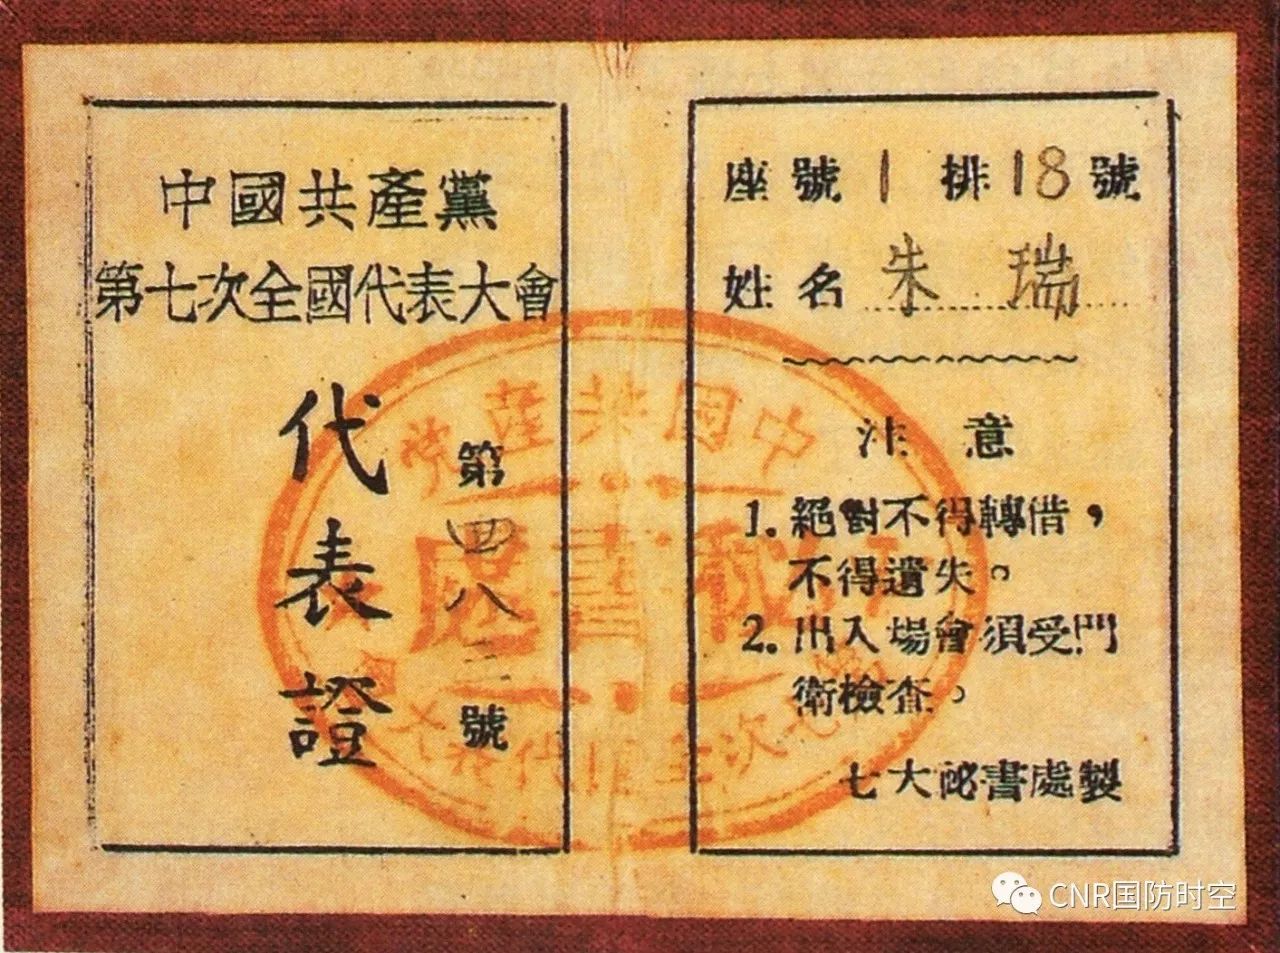 中國共產黨
第七次全國代表大會
代表證
第四八三號
座號1排18號
姓名 朱瑞
注意
1. 絕對不得轉借，
不得遺失。
2. 出入場會須受門
衛檢查。
七大祕書處製
中國共產党
祕書處
第七次全国代表大會
CNR国防时空